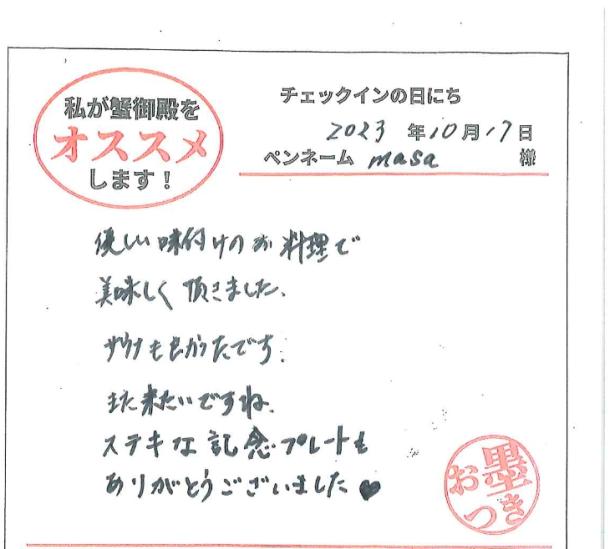 私が蟹御殿を
オススメ
します！
チェックインの日にち
2023 年 10 月 17 日
ペンネーム masa 様
優しい味付けのお料理で
美味しく頂きました。
サウナも良かったです。
また来たいですね。
ステキな記念プレートも
ありがとうございました♥
お墨
つき